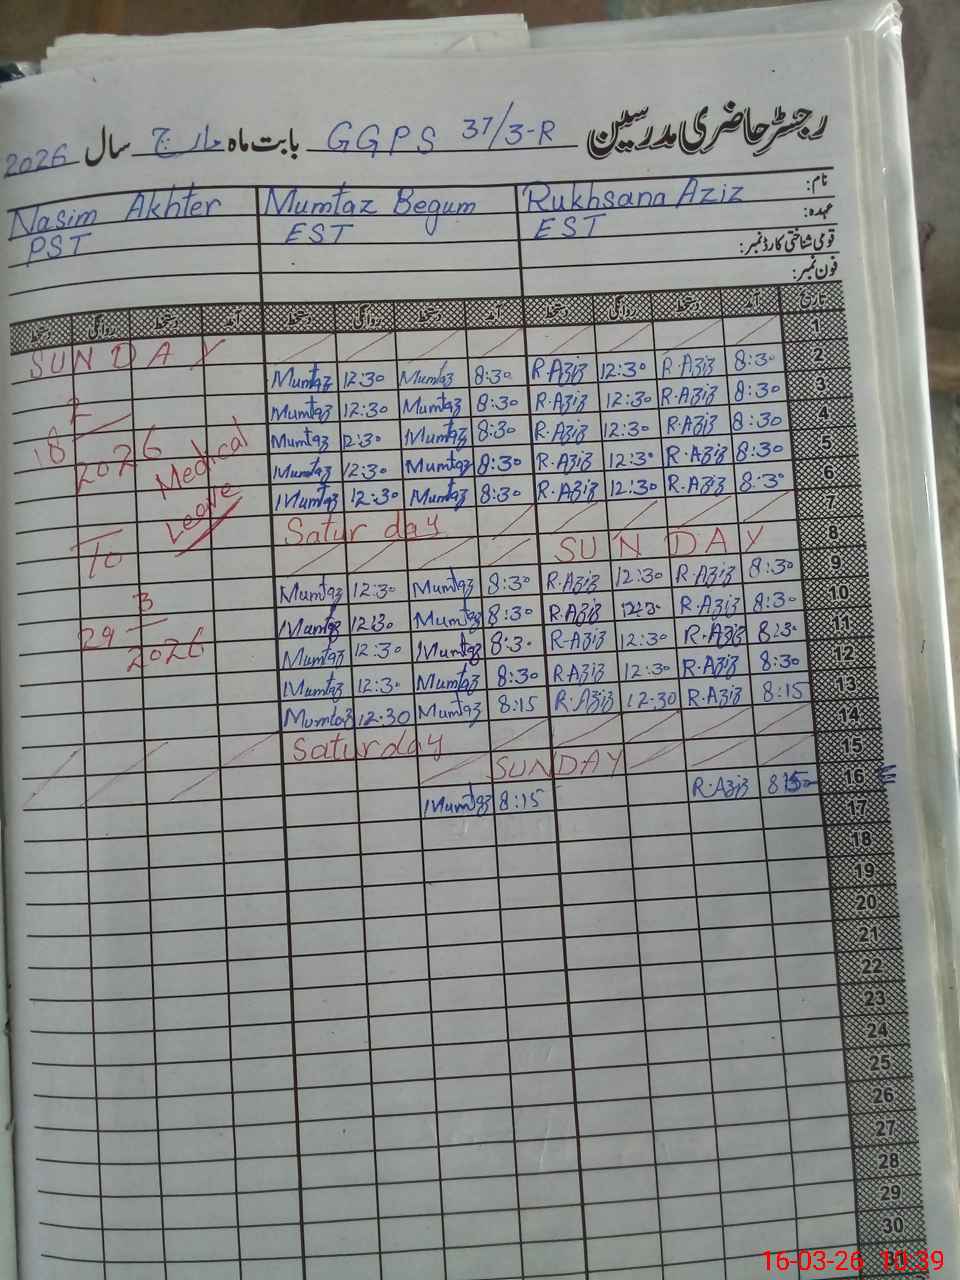 رجسٹر حاضری مدرسین GGPS 37/3-R بابت ماہ مارچ سال 2026
نام: Rukhsana Aziz Mumtaz Begum Nasim Akhter
عہدہ: EST EST PST
قومی شناختی کارڈ نمبر:
فون نمبر:
تاریخ آمد دستخط روانگی دستخط آمد دستخط روانگی دستخط آمد دستخط روانگی دستخط
1 SUNDAY
2 8:30 R.Aziz 12:30 R.Aziz 8:30 Mumtaz 12:30 Mumtaz
3 8:30 R.Aziz 12:30 R.Aziz 8:30 Mumtaz 12:30 Mumtaz
4 8:30 R.Aziz 12:30 R.Aziz 8:30 Mumtaz 12:30 Mumtaz
5 8:30 R.Aziz 12:30 R.Aziz 8:30 Mumtaz 12:30 Mumtaz
6 8:30 R.Aziz 12:30 R.Aziz 8:30 Mumtaz 12:30 Mumtaz
7 Saturday
8 SUNDAY
9 8:30 R.Aziz 12:30 R.Aziz 8:30 Mumtaz 12:30 Mumtaz
10 8:30 R.Aziz 12:30 R.Aziz 8:30 Mumtaz 12:30 Mumtaz
11 8:30 R.Aziz 12:30 R.Aziz 8:30 Mumtaz 12:30 Mumtaz
12 8:30 R.Aziz 12:30 R.Aziz 8:30 Mumtaz 12:30 Mumtaz
13 8:15 R.Aziz 12:30 R.Aziz 8:15 Mumtaz 12:30 Mumtaz
14 Saturday
15 SUNDAY
16 R.Aziz 8:15 Mumtaz
17
18
19
20
21
22
23
24
25
26
27
28
29
30
2
18
2026
Medical
Leave
To
3
29
2026
16-03-26 10:39